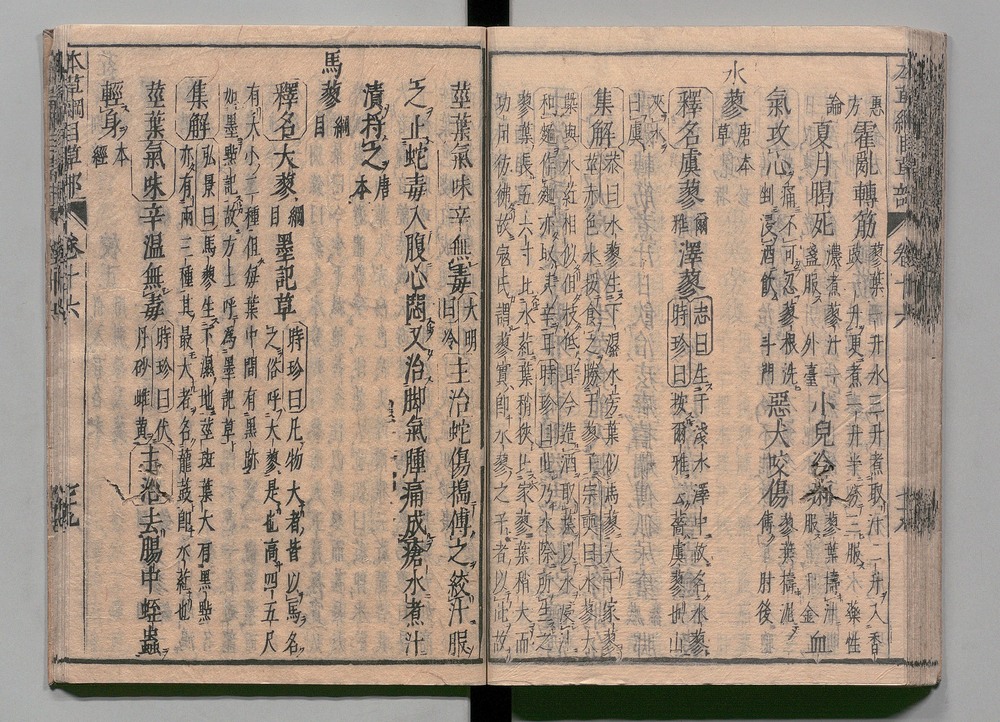 本草綱目草部 卷十六
惠 霍亂轉筋 蓼葉一升水三升煮取汁二升入香
方 豉一升更煮一升半分三服藥性
論 夏月暍死 濃煮蓼汁一盞服外臺 小兒冷痢 蓼葉擣汁服千金 血
氣攻心 痛不可忍蓼根洗剉浸酒飲斗門 惡犬咬傷 蓼葉擣泥傅肘後
水蓼 唐本草
釋名虞蓼 爾雅 澤蓼 志曰生于淺水澤中故名水蓼
時珍曰按爾雅云薔虞蓼也山
夾水曰虞
集解 恭曰水蓼生下濕水旁葉似馬蓼大于家蓼
莖赤色水挼食之勝于蓼子宗奭曰水蓼大
槩與水紅相似但枝低耳今造酒取葉以水浸汁
和麪作麴亦取其辛耳時珍曰此乃水際所生之
蓼葉長五六寸比水葒葉稍狹比家蓼葉稍大而
功用仿佛故寇氏謂蓼實即水蓼之子者以此故
莖葉氣味辛無毒 大明曰冷 主治蛇傷擣傅之絞汁服
之止蛇毒入腹心悶又治脚氣腫痛成瘡水煮汁
漬捋之 唐本
馬蓼 綱目
釋名大蓼 綱目 墨記草 時珍曰凡物大者皆以馬名
之俗呼大蓼是也高四五尺
有大小二種但每葉中間有黑跡
如墨點記故方士呼為墨記草
集解 弘景曰馬蓼生下濕地莖斑葉大有黑點
亦有兩三種其最大者名蘢鼓即水葒也
莖葉氣味辛溫無毒 時珍曰伏丹砂雌黃 主治去腸中蛭蟲
輕身 本經
本草綱目草部 卷十六